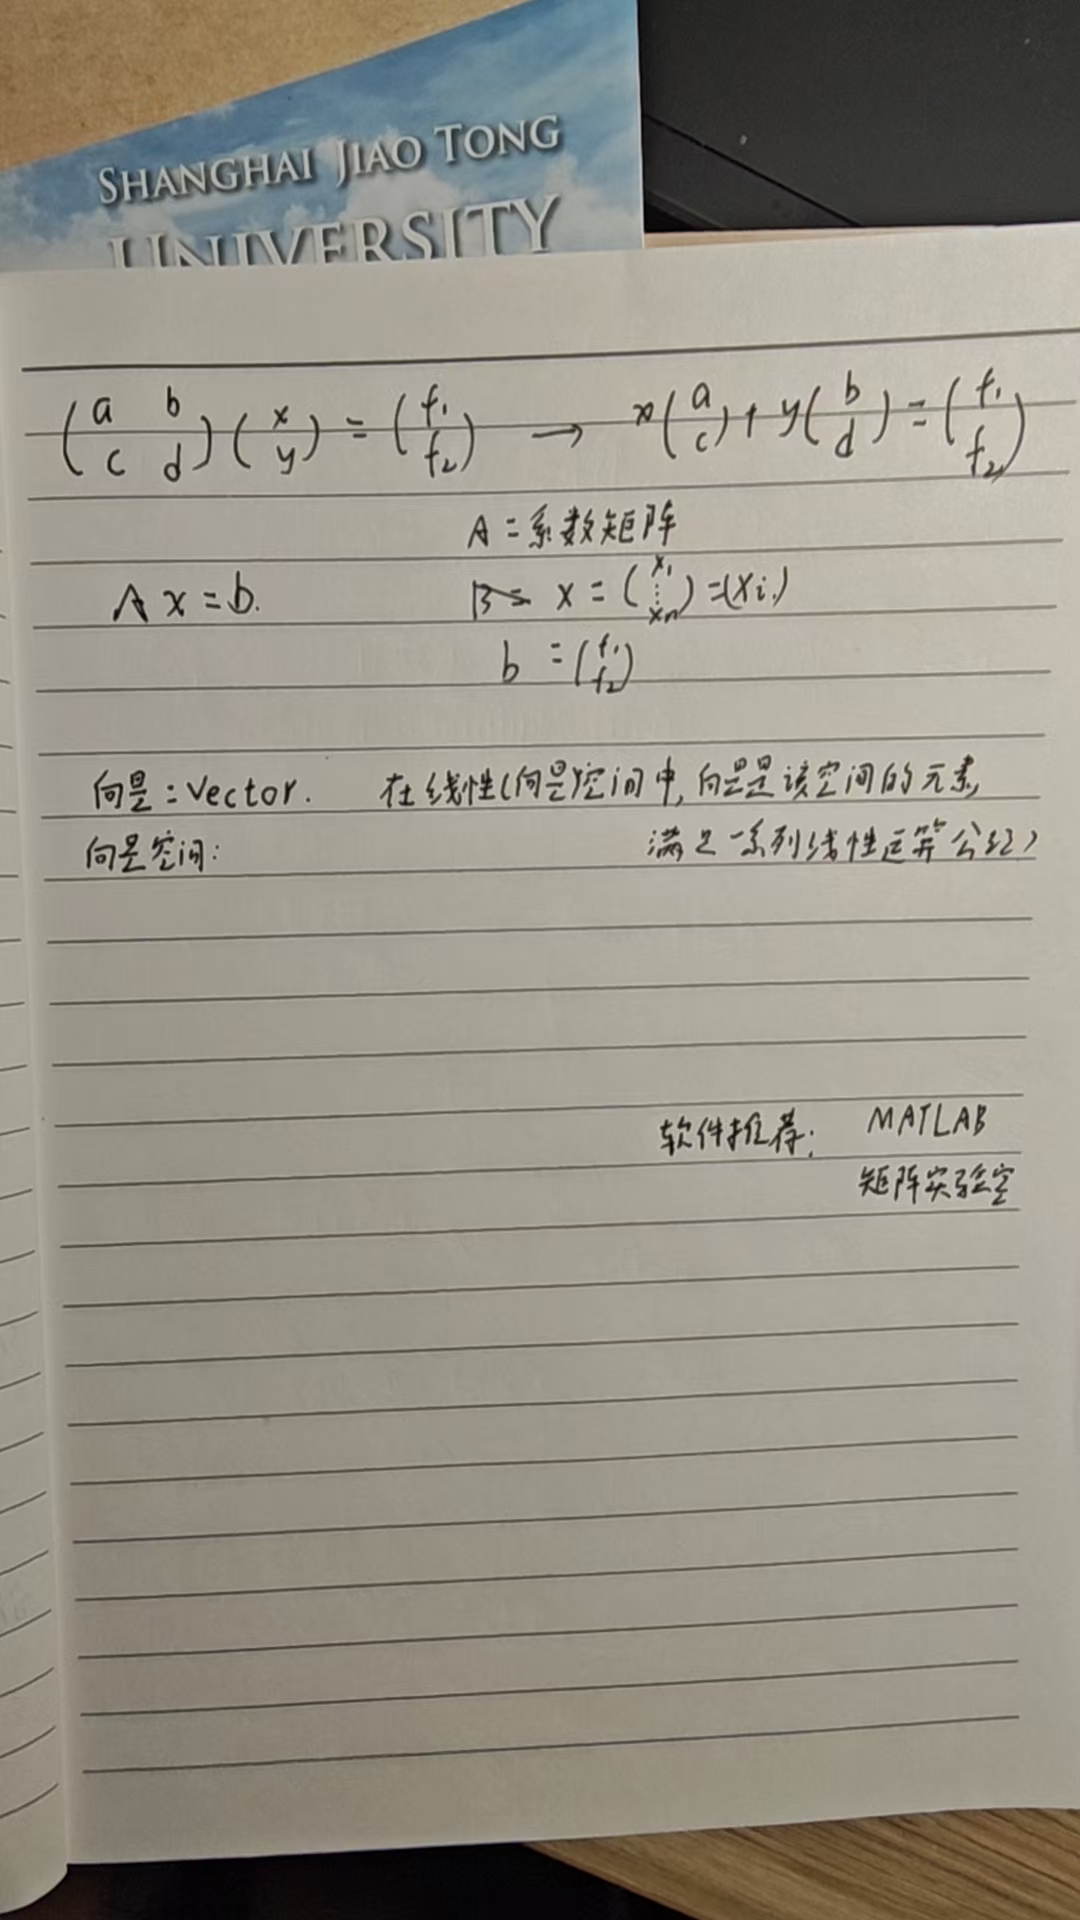 SHANGHAI JIAO TONG
UNIVERSITY
(a b
c d)(x
y) = (f₁
f₂) → x(a
c) + y(b
d) = (f₁
f₂)
A = 系数矩阵
A x = b. x = (x₁
⋮
xₙ) = (xi.)
b = (f₁
f₂)
向量: Vector. 在线性(向量)空间中, 向量是该空间的元素,
向量空间: 满足一系列线性运算公理)
软件推荐: MATLAB
矩阵实验室